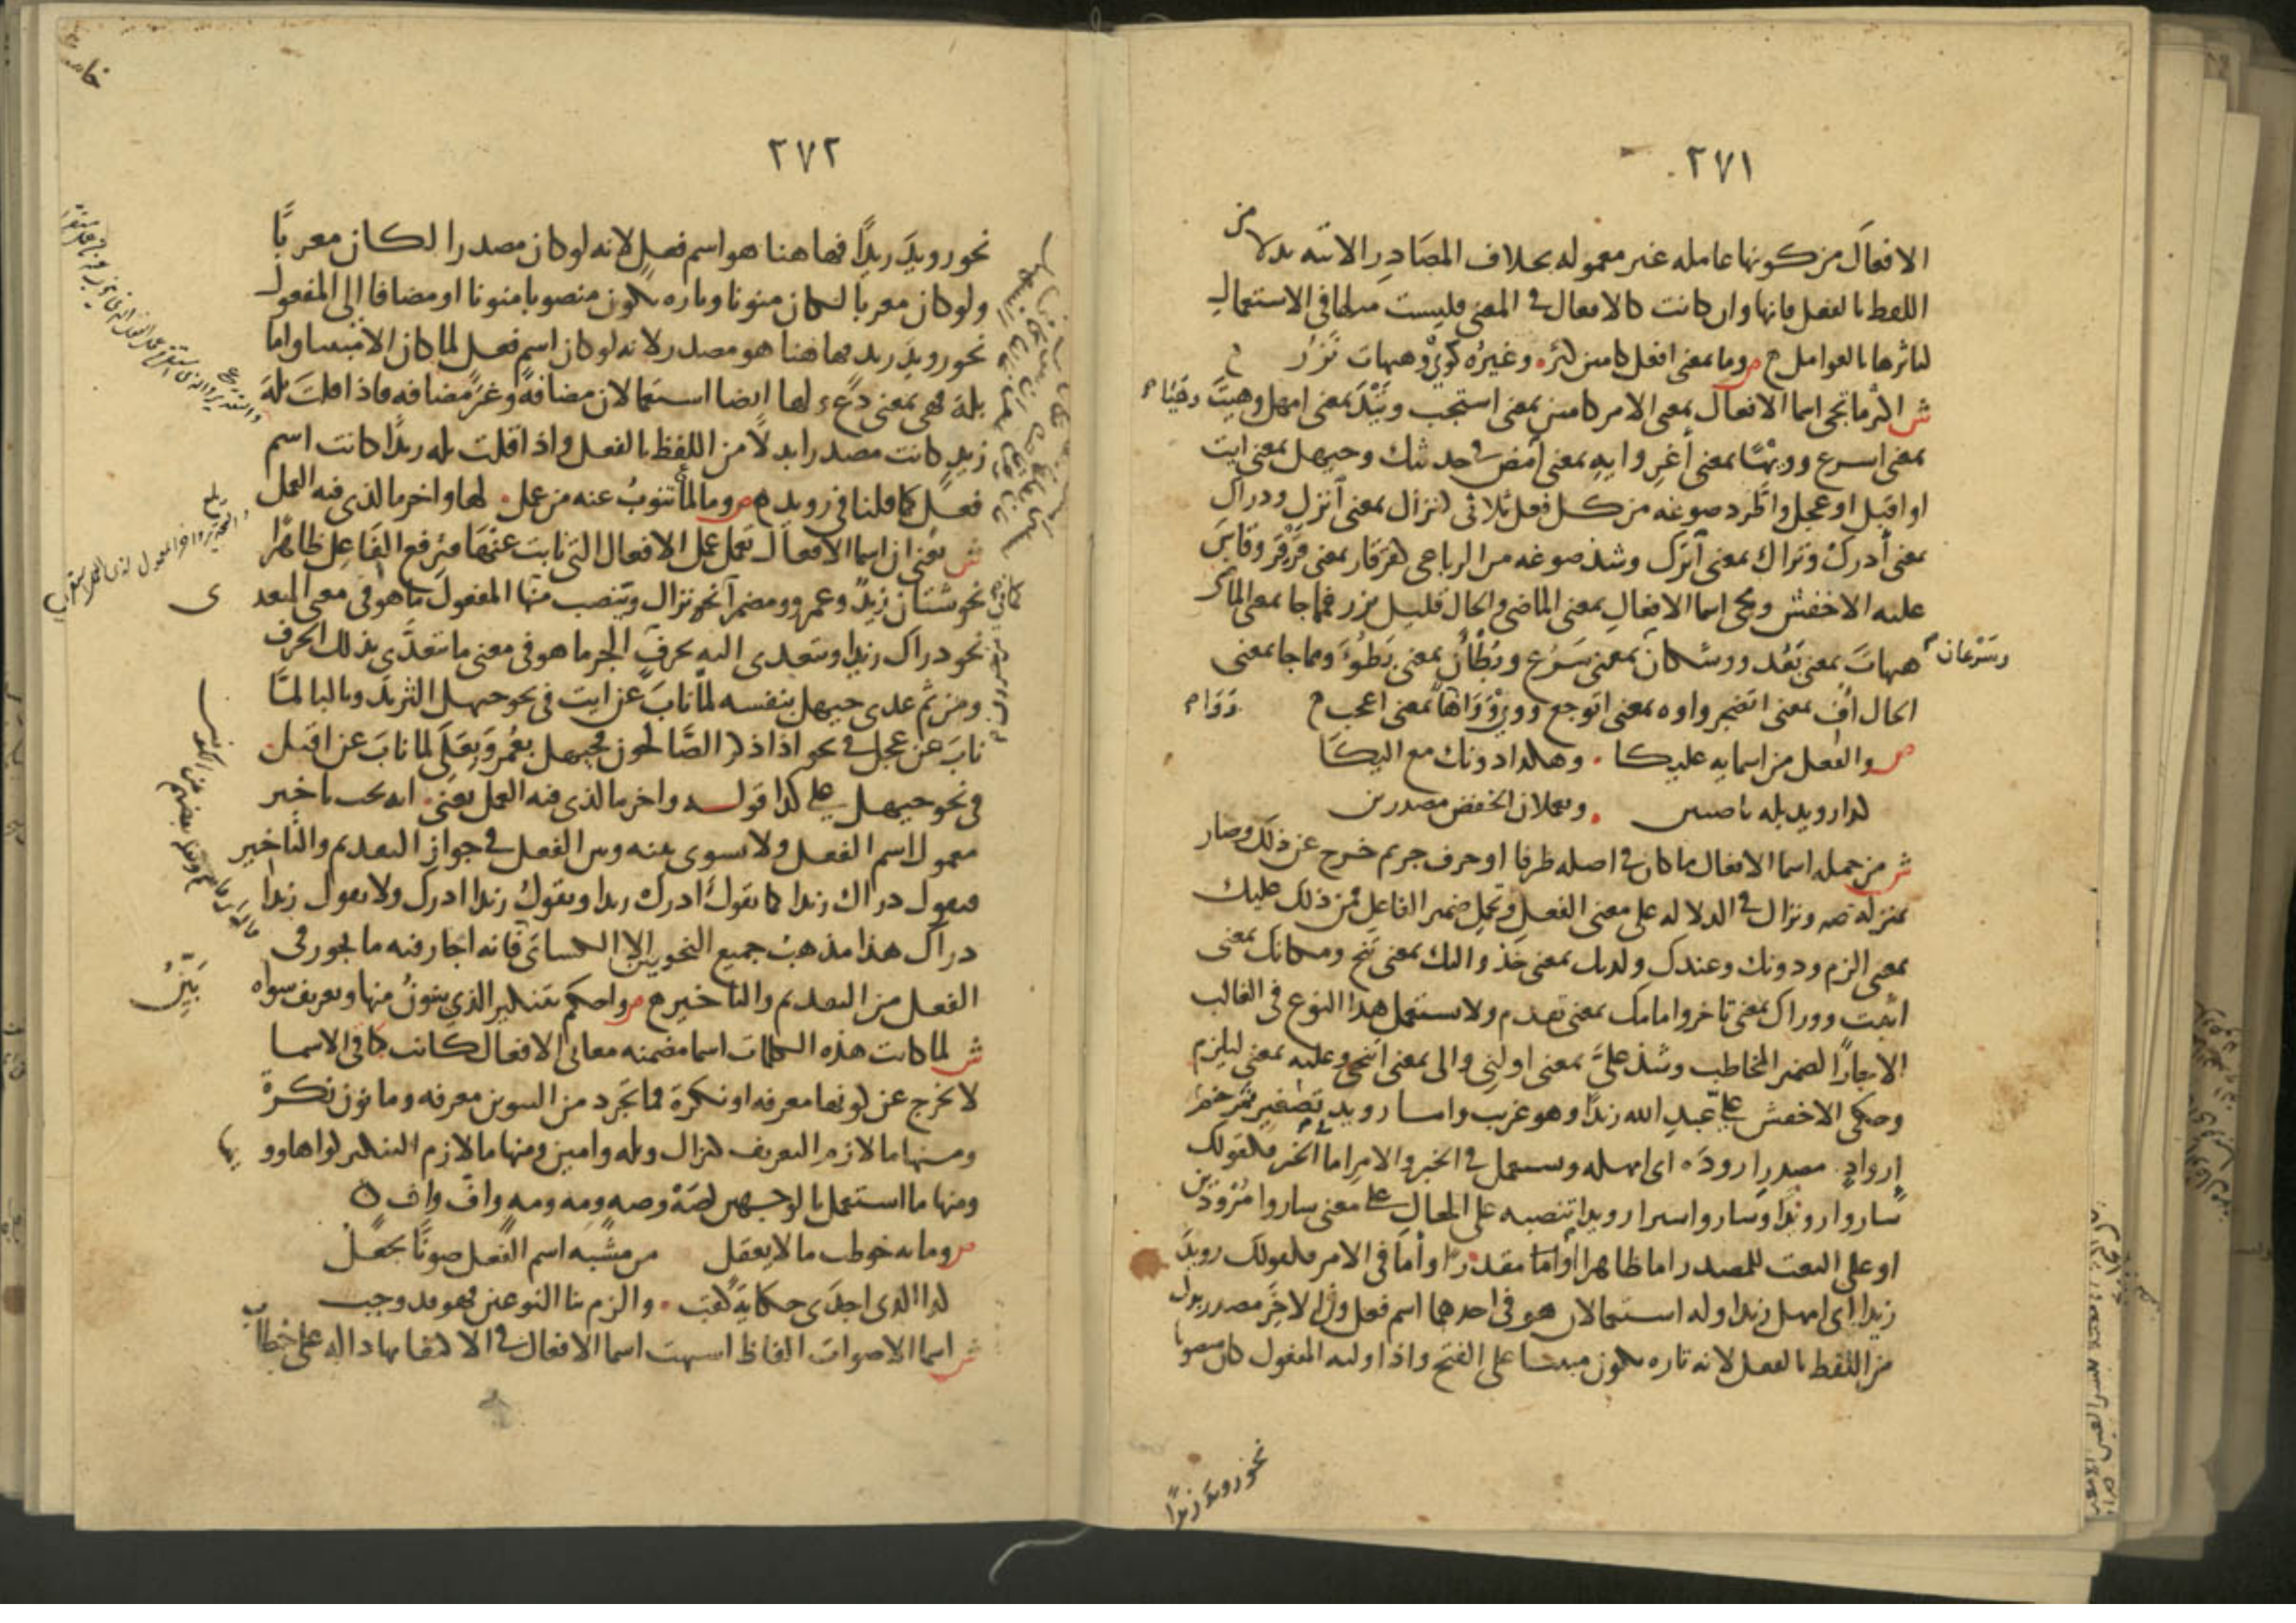 ٢٧١
الافعال من كونها عامله غير معموله بخلاف المصادر الاتيه بدلا من
اللفظ بالفعل فانها وان كانت كالافعال في المعنى فليست مثلها في الاستعمال
لتاثرها بالعوامل ص وما بمعنى افعل كامين كثر وغيره كوى وهيهات نزر
ش اكثر ما تجى اسما الافعال بمعنى الامر كامين بمعنى استجب وتيد بمعنى امهل وهيت وهيا
بمعنى اسرع وويها بمعنى أغر وايه بمعنى امض في حديثك وحيهل بمعنى ايت
او اقبل او عجل واطرد صوغه من كل فعل ثلاثى كنزال بمعنى انزل ودراك
بمعنى أدرك وتراك بمعنى اترك وشذ صوغه من الرباعى كقرقار بمعنى قرقر وقاس
عليه الاخفش ومجى اسما الافعال بمعنى الماضى والحال قليل نزر فما جا بمعنى الماضى
وسرعان
هيهات بمعنى بعد ووشكان بمعنى سرع وبطأن بمعنى بطوء ومما جا بمعنى
الحال اف بمعنى اتضجر واوه بمعنى اتوجع ووى وواها بمعنى اعجب
ص والفعل من اسمايه عليكا وهكذا دونك مع اليكا
كذا رويد بله ناصبين ويعملان الخفض مصدرين
ش من جمله اسما الافعال ما كان في اصله ظرفا او حرف جر ثم خرج عن ذلك وصار
بمنزله صه ونزال في الدلاله على معنى الفعل وتحمل ضمير الفاعل فمن ذلك عليك
بمعنى الزم ودونك وعندك ولديك بمعنى خذ واليك بمعنى تنح ومكانك بمعنى
اثبت ووراك بمعنى تاخر وامامك بمعنى تقدم ولا يستعمل هذا النوع في الغالب
الا جارا لضمير المخاطب وشذ علىّ بمعنى اولنى والى بمعنى اتنحى وعليه بمعنى ليلزم
وحكى الاخفش على عبد الله زيدا وهو غريب واما رويد تصغير ترخيم
إرواد مصدر ارودَه اى امهله ويستعمل في الخبر والامر اما الخبر فكقولك
ساروا رويدا وساروا سيرا رويدا تنصبه على الحال على معنى ساروا مرودين
او على النعت للمصدر اما ظاهرا واما مقدرا واما في الامر فكقولك رويد
زيدا اى امهل زيدا وله استعمالان هو في احدهما اسم فعل وفي الاخر مصدر بدل
من اللفظ بالفعل لانه تاره يكون مبنيا على الفتح واذا وليه المفعول كان منصوبا
نحو رويد زيدا
٢٧٢
نحو رويدَ زيدًا فها هنا هو اسم فعل لانه لو كان مصدرا لكان معربًا
ولو كان معربا لكان منونا وتاره يكون منصوبا منونا او مضافا الى المفعول
نحو رويدَ زيد فها هنا هو مصدر لانه لو كان اسم فعل لما كان الا مبنيا واما
بله فهى بمعنى دع ولها ايضا استعمالان مضافة وغير مضافه فاذا قلت بله
زيد كانت مصدرا بدلا من اللفظ بالفعل واذا قلت بله زيدا كانت اسم
فعل كما قلنا في رويد ص وما لما تنوب عنه من عمل لها واخر ما لذى فيه العمل
ش يعنى ان اسما الافعال تعمل عمل الافعال التى نابت عنها فترفع الفاعل ظاهرا
نحو شتان زيد وعمرو ومضمرا نحو نزال وينصب منها المفعول ما هو في معنى المتعدى
نحو دراك زيدا ويتعدى اليه بحرف الجر ما هو في معنى ما يتعدى بذلك الحرف
ومن ثم عدى حيهل بنفسه لما ناب عن ايت في نحو حيهل الثريد وبالبا لما
ناب عن عجل في نحو اذا ذكر الصالحون فحيهل بعمر وبعلى لما ناب عن اقبل
في نحو حيهل على كذا قوله واخر ما لذى فيه العمل يعنى انه يجب تاخير
معمول اسم الفعل ولا يسوى بينه وبين الفعل في جواز التقديم والتاخير
فتقول دراك زيدا كما تقول ادرك زيدا وتقول زيدا ادرك ولا تقول زيدا
دراك هذا مذهب جميع النحويين الا الكسائى فانه اجاز فيه ما يجوز في
الفعل من التقديم والتاخير ص واحكم بتنكير الذى ينون منها وتعريف سواه بين
ش لما كانت هذه الكلمات اسما مضمنه معانى الافعال كانت كافى الاسما
لا تخرج عن كونها معرفه او نكرة فما تجرد من التنوين معرفه وما نون نكرة
ومنها ما لازم التعريف كنزال وبله وامين ومنها ما لازم التنكير كواها وويها
ومنها ما استعمل بالوجهين كصه وصه ومه ومه واف واف
ص وما به خوطب ما لا يعقل من مشبه اسم الفعل صوتا يجعل
كذا الذى اجدى حكاية كقب والزم بنا النوعين فهو قد وجب
ش اسما الاصوات الفاظ اشبهت اسما الافعال في الاكتفا بها داله على خطاب